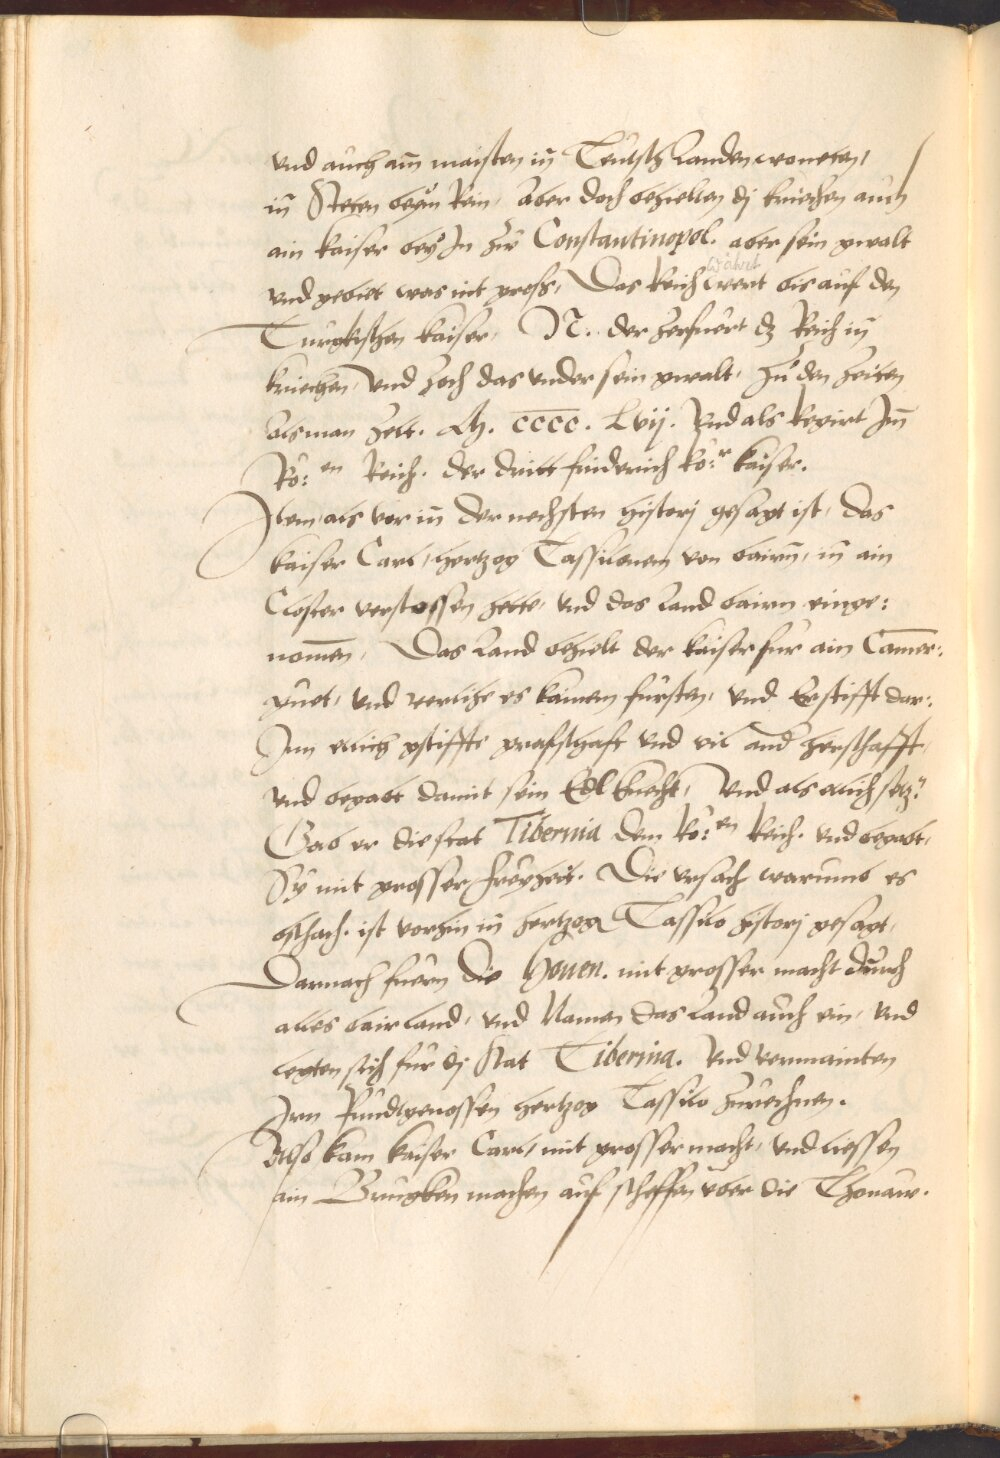 vnd auch am̄ maisten in̄ Teutsch Landen woneten,
in̄ Steten beym Rein, Aber doch behielten dj kriechen auch
ain kaiser bey In zu Constantinopel. aber sein gwalt
vnd gebiet was nit groß, Das Reich wert bis auf den
währt
Turgkischen kaiser, N. der zerfuert dz Reich in̄
kriechen, vnd zoch das vnder sein gwalt, Zu den Zeiten
Als man zelt. M. cccc. Lvij. Vnd als Regirt Im̄
Rö:en Reich. der dritt friderich Rö:r kaiser.
Item, als vor in̄ der nechsten histori gesagt ist, das
kaiser Carl, hertzog Tassilonem von bairn̄, in̄ ain
Closter verstossen hette, vnd das Land bairn einge:
nom̄en, Das Land behielt der kaiser fur ain Cam̄er:
guet, vnd verlihe es kainem fursten, vnd Erstifft dar:
Inn etlich gstiffte grafschaft vnd vil and herschafft,
vnd begabt damit sein Edl knecht, Vnd als etlich
Gab er die stat Tibernia dem Rö:en Reich. vnd begabt,
Sy mit grosser freyheit. Die vrsach warumb es
bschach. ist vorhin in̄ hertzog Tassilo histori gesagt,
Darnach fuern die Honen. mit grosser macht durch
alles bairland, vnd Namen das Land auch ein, vnd
legten sich fur dj Stat Tiberina. Vnd vermainten
Irn Pundtgenossen hertzog Tassilo zurechnen.
Also kam kaiser Carl, mit grosser macht, vnd liessen
ain Brugken machen auf scheffen vber die Thonaw.